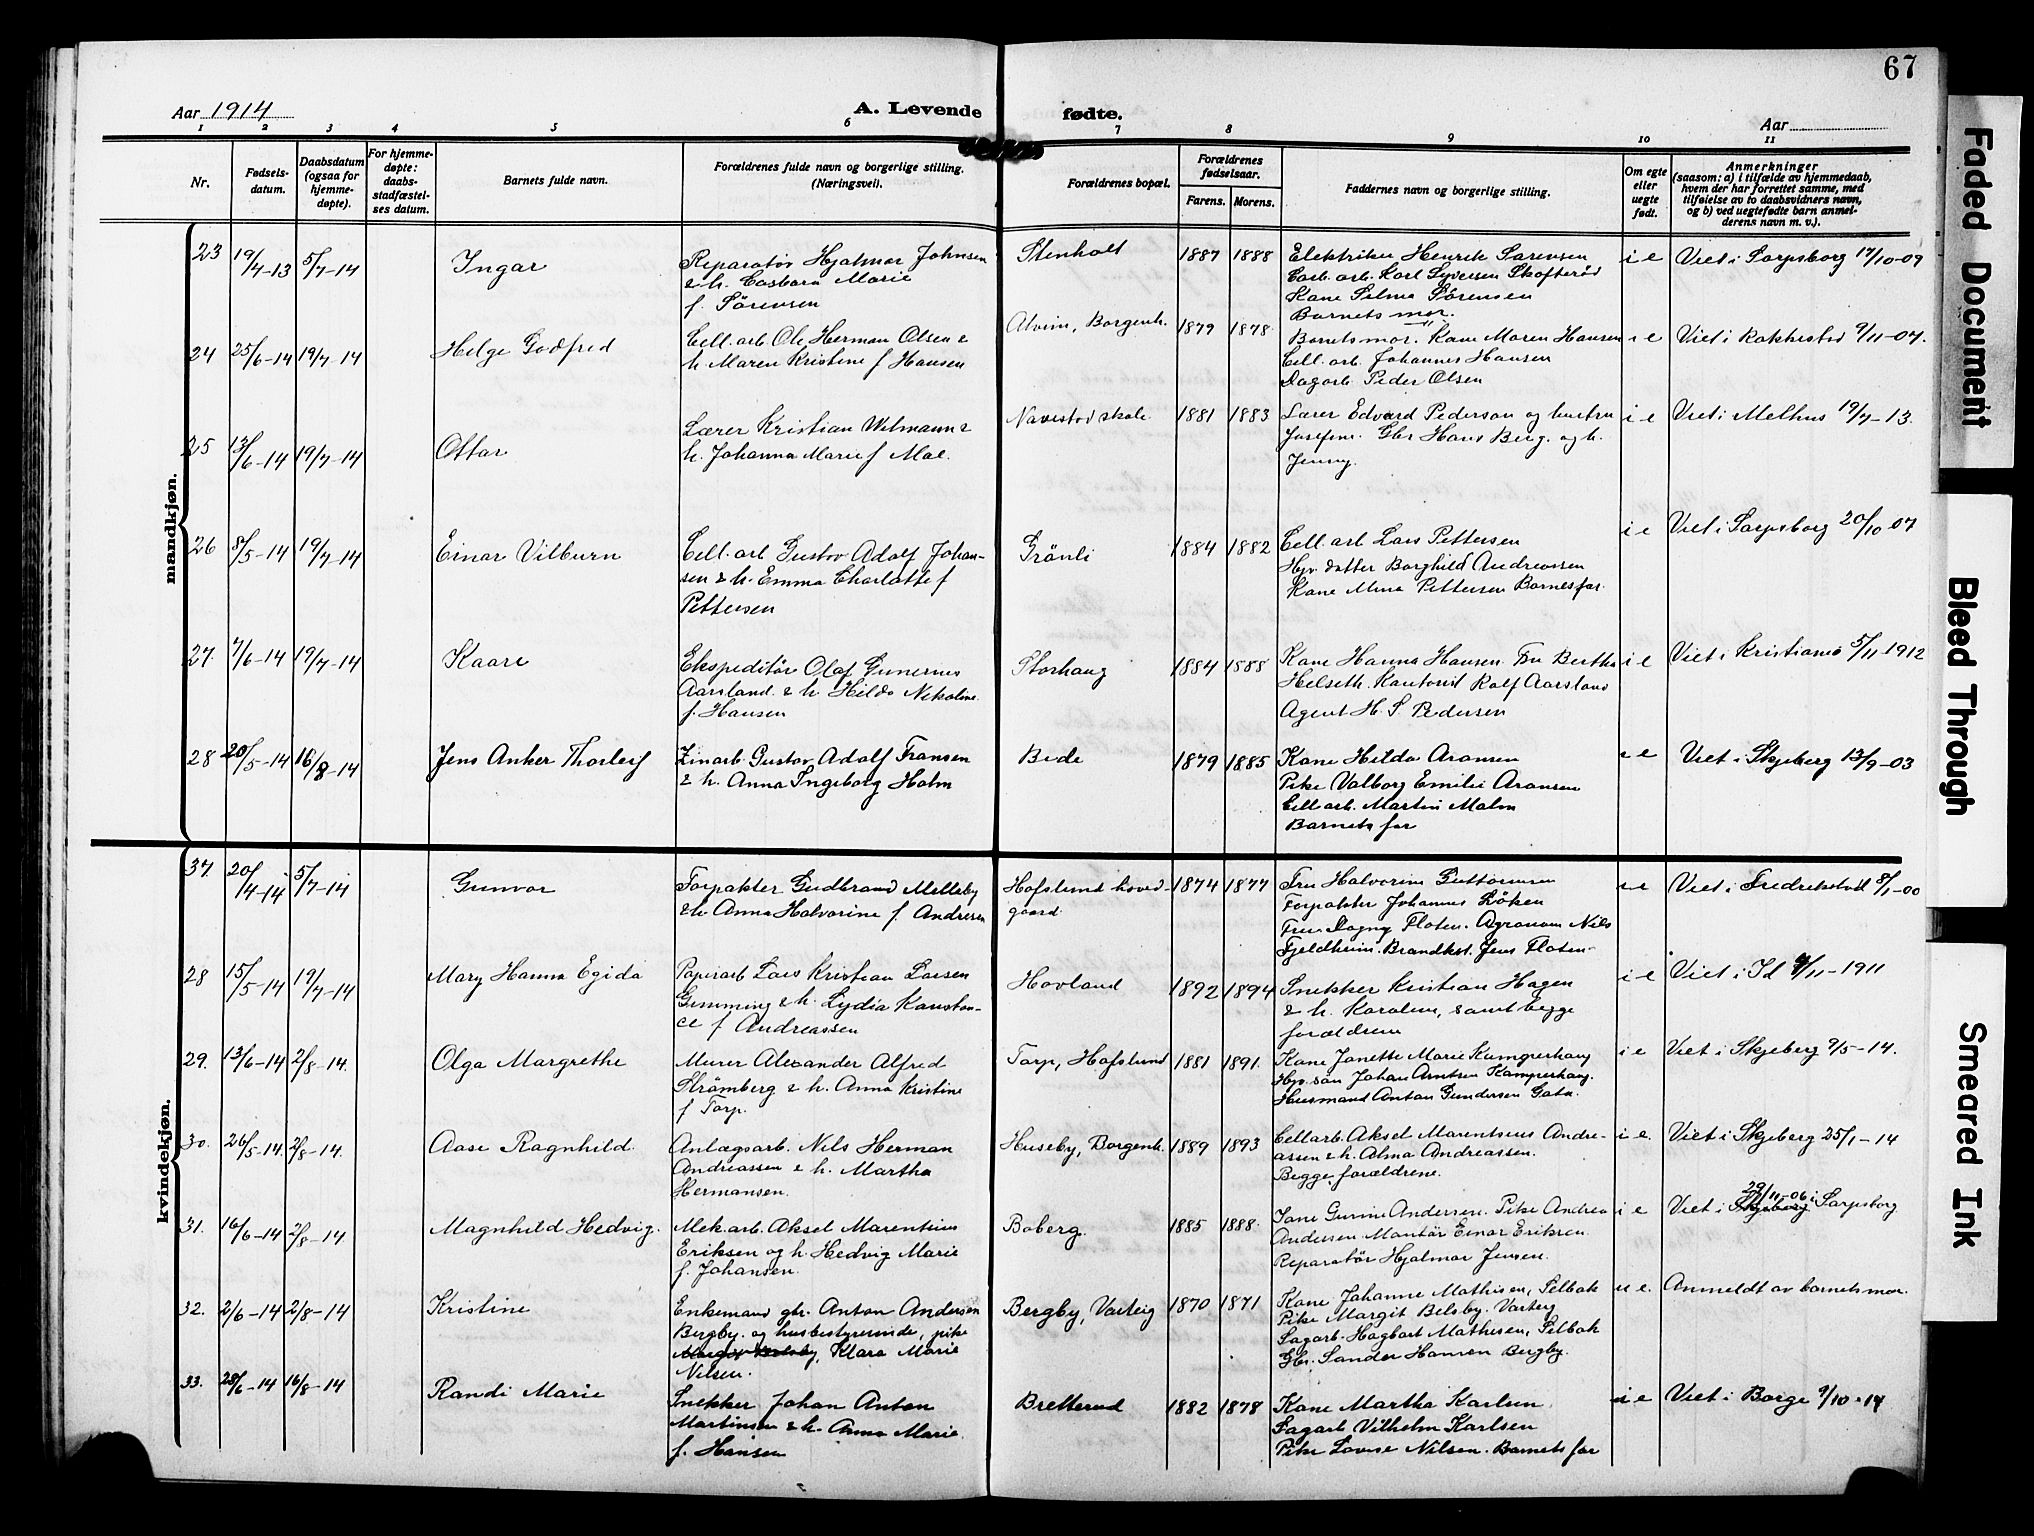 67
Aar 1914
A. Levende fødte.
Aar
1 2 3 4 5 6 7 8 9 10 11
Nr.
Fødsels-
datum.
Daabsdatum
(ogsaa for
hjemme-
døpte).
For hjemme-
døpte:
daabs-
stadfæstel-
ses datum.
Barnets fulde navn.
Forældrenes fulde navn og borgerlige stilling.
(Næringsvei).
Forældrenes bopæl.
Forældrenes
fødselsaar.
Farens. Morens.
Faddernes navn og borgerlige stilling.
Om egte
eller
uegte
født.
Anmerkninger
(saasom: a) i tilfælde av hjemmedaab,
hvem der har forrettet samme, med
tilføielse av to daabsvidners navn,
og b) ved uegtefødte barn anmel-
derens navn m. v.).
maandkjøn.
23 19/4-13 5/7-14 Ingar
Reparatør Hjalmar Johnsen
& h. Marie
f. Sørensen
Stenholt 1887 1888
Elektriker Henrik Sørensen
Carb. arb. Karl Syversen Skofterød
Kone Selma Sørensen
Barnets mor.
i e Viet i Sarpsborg 17/10-09
24 25/6-14 19/7-14 Helge Godfred
Cell. arb. Ole Herman Olsen &
h. Maren Kristine f Hansen
Alvim, Borgenh. 1879 1878
Barnets mor. Kone Maren Hansen
Cell. arb. Johannes Hansen
Dagarb. Peder Olsen
i e Viet i Rakkestad 9/11-07.
25 13/6-14 19/7-14 Ottar
Lærer Kristian Wilmann &
h. Johanna Marie f Moe.
Navestad skole 1881 1883
Lærer Edvard Pederson og hustru
Josefine. Gbr Hans Berg. og h.
Jenny.
i e Viet i Melhus 19/7-13.
26 8/5-14 19/7-14 Einar Vilburn
Cell. arb Gustav Adolf Johan-
sen & h. Emma Charlotte f
Pettersen
Grönli 1884 1882
Cell. arb Lars Pettersen
Hjv. datter Borghild Andreassen
Kone Mina Pettersen Barnesfar.
i e Viet i Sarpsborg 20/10-07
27. 7/6-14 19/7-14 Kaare
Ekspeditör Olaf Gunerius
Aarsland & h. Hilda Nikoline
f. Hansen
Storhaug 1884 1888
Kone Hanna Hansen. Fru Bertha
Helseth. Kontorist Rolf Aarsland
Agent H. S. Pedersen
i e Viet i Kristiania 5/11-1912
28 20/5-14 16/8-14 Jens Anker Thorleif
Zinarb. Gustav Adolf Fransen
& h. Anna Ingeborg Holm
Bede 1879 1885
Kone Hilda Aronsen
Pike Valborg Emilie Aronsen
Cell arb. Martin Malm
Barnets far
i e Viet i Skjeberg 13/9-03
kvindekjøn.
37. 20/4-14 5/7-14 Gunvor
Forpakter Gudbrand Melleby
& h. Anna Halvorine f. Andresen
Hafslund hoved-
gaard
1874 1877
Fru Halvorine Guttormsen
Forpakter Johannes Löken
Fru Dagny Floten. Agronom Nils
Fjeldheim. Jens Floten
i e Viet i Fredrikstad 8/1-00
28 15/5-14 19/7-14 Mary Hanna Egida
Papirarb Lars Kristian Larsen
Gimming & h. Lydia Konstan-
ce f Andreassen
Hovland 1892 1894
Snekker Kristian Hagen
& h. Karoline, samt begge
forældrene
i e Viet i Id 4/11-1911
29. 13/6-14 2/8-14. Olga Margrethe
Murer Alexander Alfred
Strömberg & h. Anna Kristine
f Torp.
Torp, Hafslund 1881 1891.
Kone Janette Marie Kamperhaug
Hjv. sön Johan Arntsen Kamperhaug.
Husmand Anton Gundersen Gata.
i e Viet i Skjeberg 9/5-14.
30. 26/5-14. 2/8-14. Aase Ragnhild.
Anlægsarb. Nils Herman
Andreassen & h. Martha
Hermansen.
Huseby, Borgenh. 1889 1893
Cellarb. Aksel Marentsius Andre-
assen & h. Alma Andreassen.
Begge forældrene.
i e. Viet i Skjeberg 25/1-14
31. 16/6-14 2/8-14 Magnhild Hedvig.
Mek. arb. Aksel Marentius
Eriksen og h. Hedvig Marie
f. Johansen.
Boberg. 1885 1888.
Andersen. Pike Andrea
Andersen Montör Einar Eriksen.
Reparatör Hjalmar Jensen.
i e Viet i Skjeberg Sarpsborg
29/11-06 i
32. 2/6-14 2/8-14 Kristine
Enkemand gbr. Anton Andersen
Bergby. og husbestyrerinde, pike
Margit Belsby, Klara Marie
Nilsen.
Bergby, Varteig 1870 1871
Kone Johanne Mathisen, Selbak
Pike Margit Belsby. Varteig
Sagarb. Hagbart Mathisen, Selbak
Gbr. Sander Hansen Bergby.
u e. Anmeldt av barnets mor.
33. 28/6-14 16/8-14 Randi Marie
Snekker Johan Anton
Martinsen & h. Anna Marie
f. Hansen
Bretterud 1882 1878
Kone Martha Karlsen
Sagarb Vilhelm Karlsen
Pike Lovise Nilsen. Barnets far
i e Viet i Borge 9/10-14
Faded Document
Bleed Through
Smeared Ink